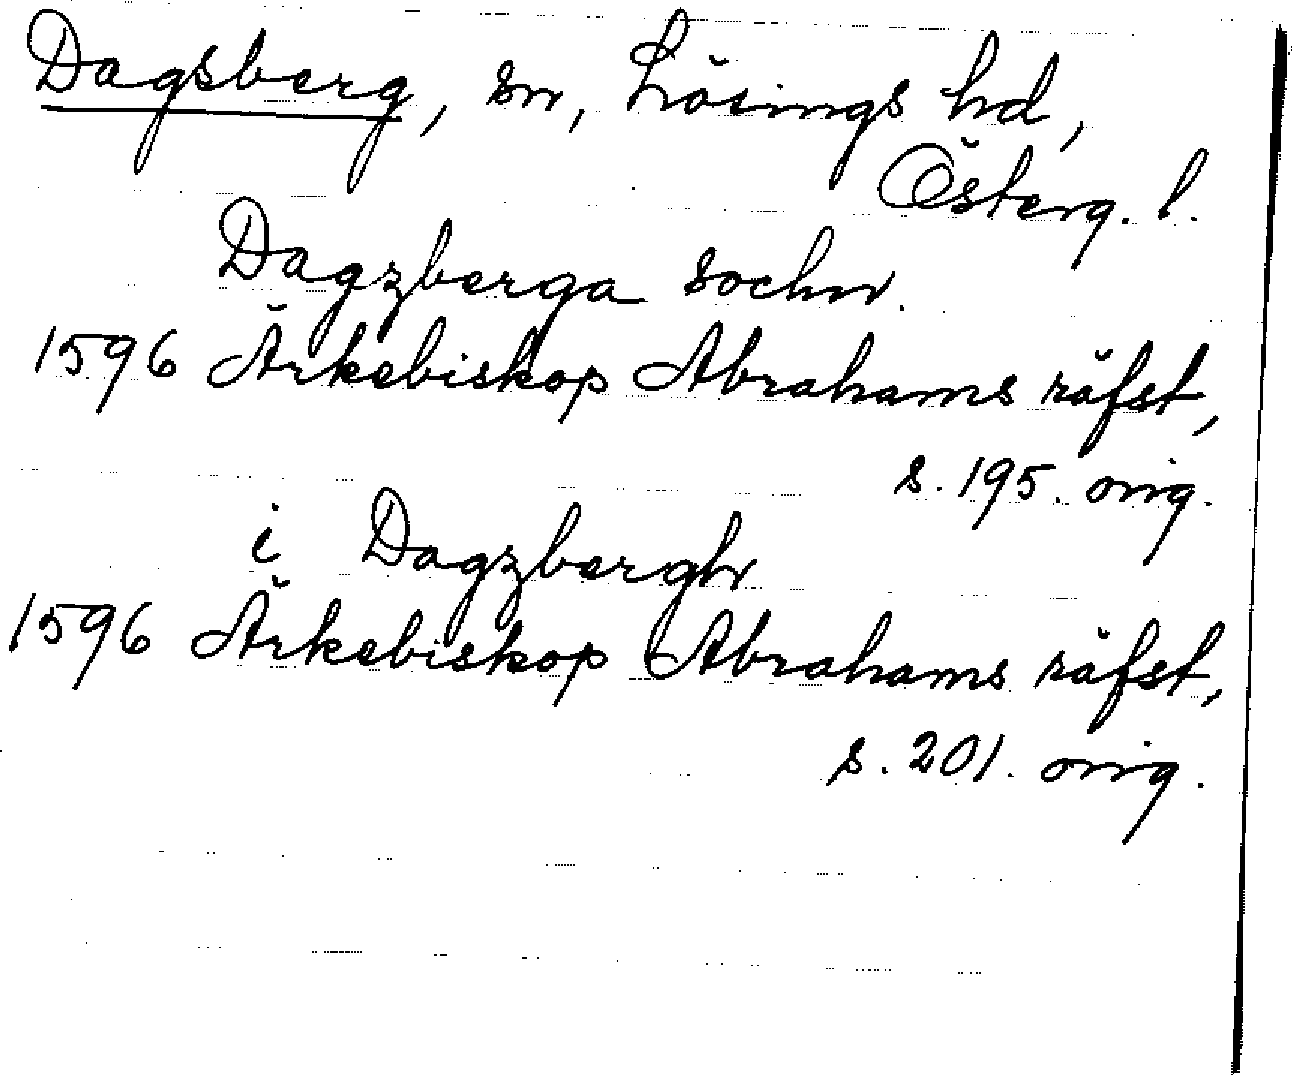 Dagsberg, sn, Lösings hd,
Österg. l.
Dagzberga sochn.
1596 Ärkebiskop Abrahams räfst,
s. 195. orig.
i Dagzbergh
1596 Ärkebiskop Abrahams räfst,
s. 201. orig.